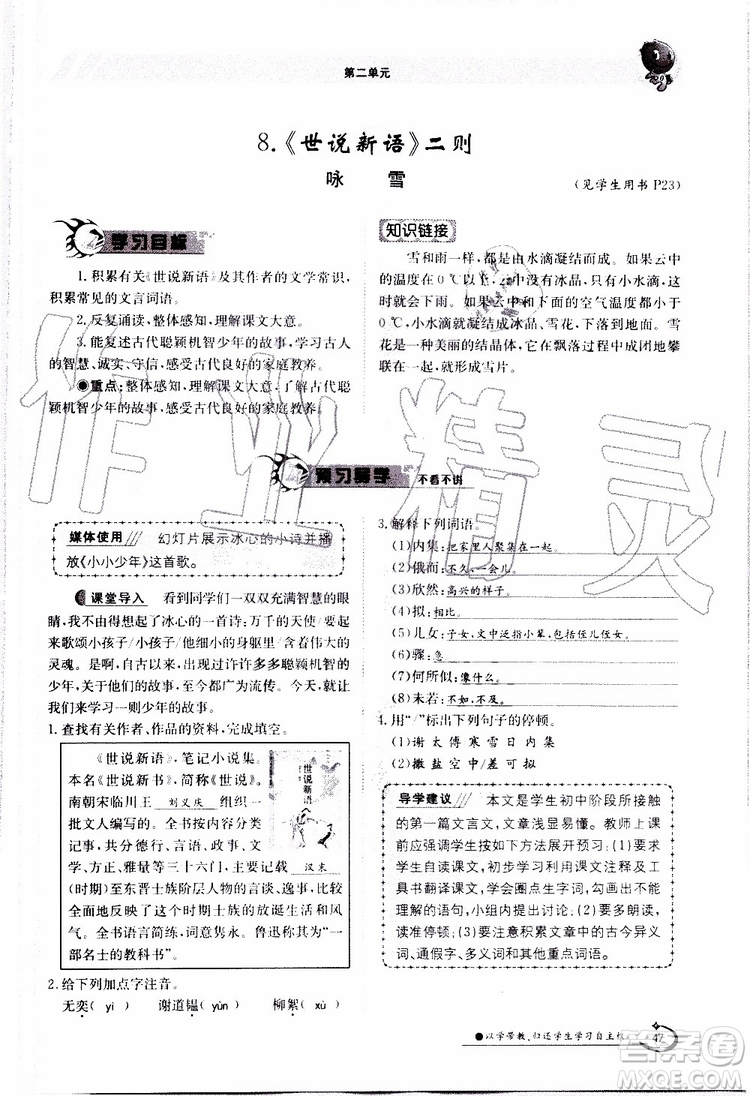 第二单元
8.《世说新语》二则
咏 雪
(见学生用书 P23)
学习目标
1.积累有关《世说新语》及其作者的文学常识，
积累常见的文言词语。
2.反复诵读，整体感知，理解课文大意。
3.能复述古代聪颖机智少年的故事，体会古人
的智慧、诚实、守信，感受古代良好的家庭教养。
●重点：整体感知，理解课文大意，了解古代聪
颖机智少年的故事，感受古代良好的家庭教养。
知识链接
雪和雨一样，都是由水滴凝结而成。如果云中
的温度在 0 ℃以上，云中没有冰晶，只有小水滴，
就会下雨。如果云中和下面的空气温度低于
0 ℃，小水滴就凝结成冰晶、雪花，下落到地面。雪
花是一种美丽的结晶体，它在飘落过程中成团地攀
联在一起，就形成雪片。
预习导学 不看不讲
媒体使用 幻灯片展示冰心的小诗并播
放《小小少年》这首歌。
课堂导入 看到同学们一双双充满智慧的眼
睛，我不由得想起了冰心的一首诗：万千的天使，要起
来歌颂小孩子/小孩子！/细小的身躯里/含着伟大的
灵魂。我国自古以来，就出现过许许多多聪颖机智的
少年，关于他们的故事，至今都广为流传。今天，就让
我们来学习一则少年的故事。
1.查找有关作者、作品的资料，完成填空。
《世说新语》，笔记小说集。
本名《世说新书》，简称《世说》。
南朝宋临川王 刘义庆 组织一
批文人编写的。全书按内容分类
记事，共分德行、言语、政事、文
学、方正、雅量等三十六门，主要记载 汉末
(时期)至东晋士族阶层人物的言谈、逸事，比较
全面地反映了这个时期士族的思想、生活和风
气。全书语言简练，词意隽永。鲁迅称其为“一
部名士的教科书”。
世说新语
2.给下列加点字注音。
无奕( yì ) 谢道韫( yùn ) 柳絮( xù )
3.解释下列词语。
(1)内集：把家里人聚集在一起。
(2)俄而：不久，一会儿。
(3)欣然：高兴的样子。
(4)拟：相比。
(5)儿女：子女，文中泛指小辈，包括侄儿侄女。
(6)骤：急
(7)何所似：像什么。
(8)未若：不如，不及。
4.用“/”标出下列句子的停顿。
(1)谢太傅寒雪日内集
(2)撒盐空中/差可拟
导学建议 本文是学生初中阶段所接触
的第一篇文言文，文章浅显易懂。教师上课
前应强调学生按如下方法展开预习：(1)要求
学生自读课文，初步学习利用课文注释及工
具书翻译课文，学会圈点生字词，勾画自己不
理解的语句，小组内提出讨论；(2)要多朗读，
读准停顿；(3)要注意积累文章中的古今异义
词、通假字、多义词和其他重点词语。
●以学带教，归还学生学习自主权
47
作业精灵
答案圈
MXQE.COM